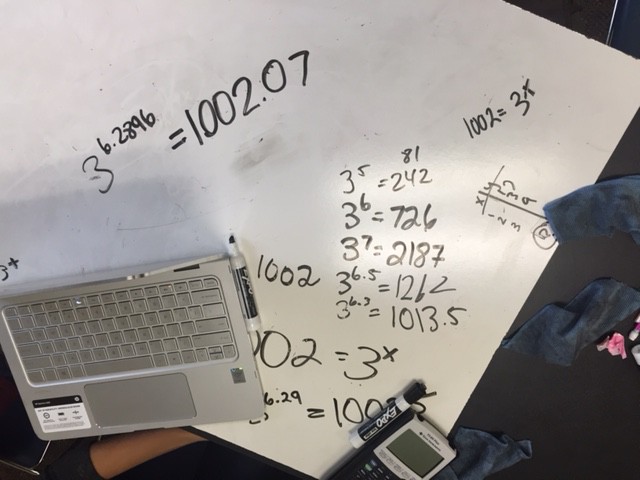 3^6.2896 = 1002.07
1002 = 3^x
81
3^5 = 242
3^6 = 726
3^7 = 2187
1002
3^6.5 = 1262
3^6.3 = 1013.5
002 = 3^x
6.29 = 100
EXPO
EXPO